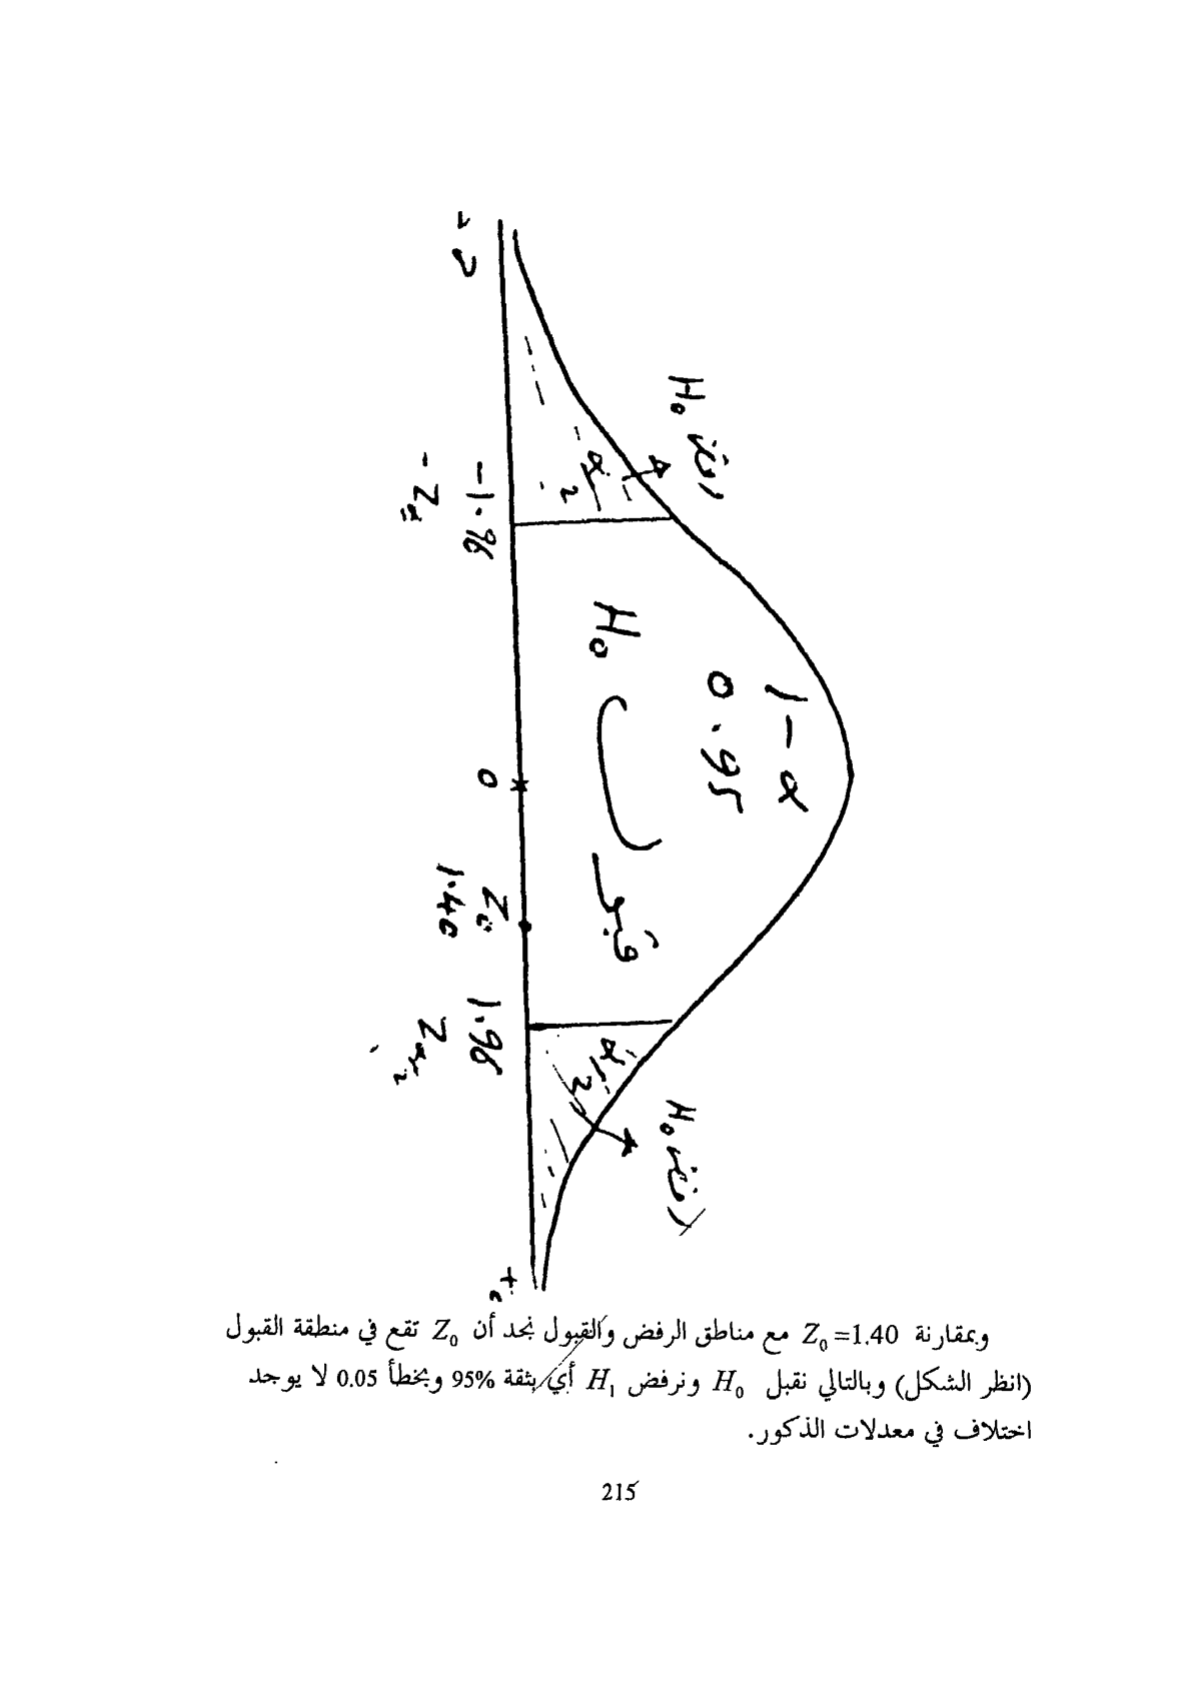 1-α
0.95
رفض H₀
رفض H₀
قبول H₀
α/2
α/2
-1.96
0
Z₀
1.40
1.96
وبمقارنة Z₀ =1.40 مع مناطق الرفض والقبول نجد أن Z₀ تقع في منطقة القبول
(انظر الشكل) وبالتالي نقبل H₀ ونرفض H₁ أي بثقة 95% وبخطأ 0.05 لا يوجد
اختلاف في معدلات الذكور.
215